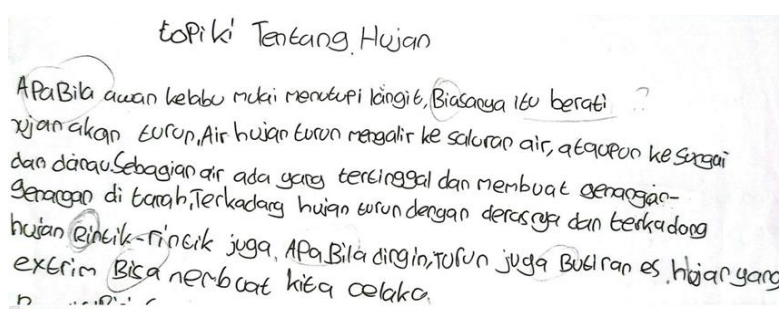 toPiki Tentang Hujan
APaBila awan kelabu mulai menutupi langit, Biasanya itu berati ?
ujan akan turun, Air hujan turun mengalir ke saluran air, ataupun ke sungai
dan danau. Sebagian air ada yang tertinggal dan membuat genangan-
genangan di tanah, Terkadang hujan turun dengan derasnya dan terkadang
hujan Rintik-rintik juga. APaBila dingin, Turun juga Butiran es. hujan yang
extrim Bisa membuat kita celaka.